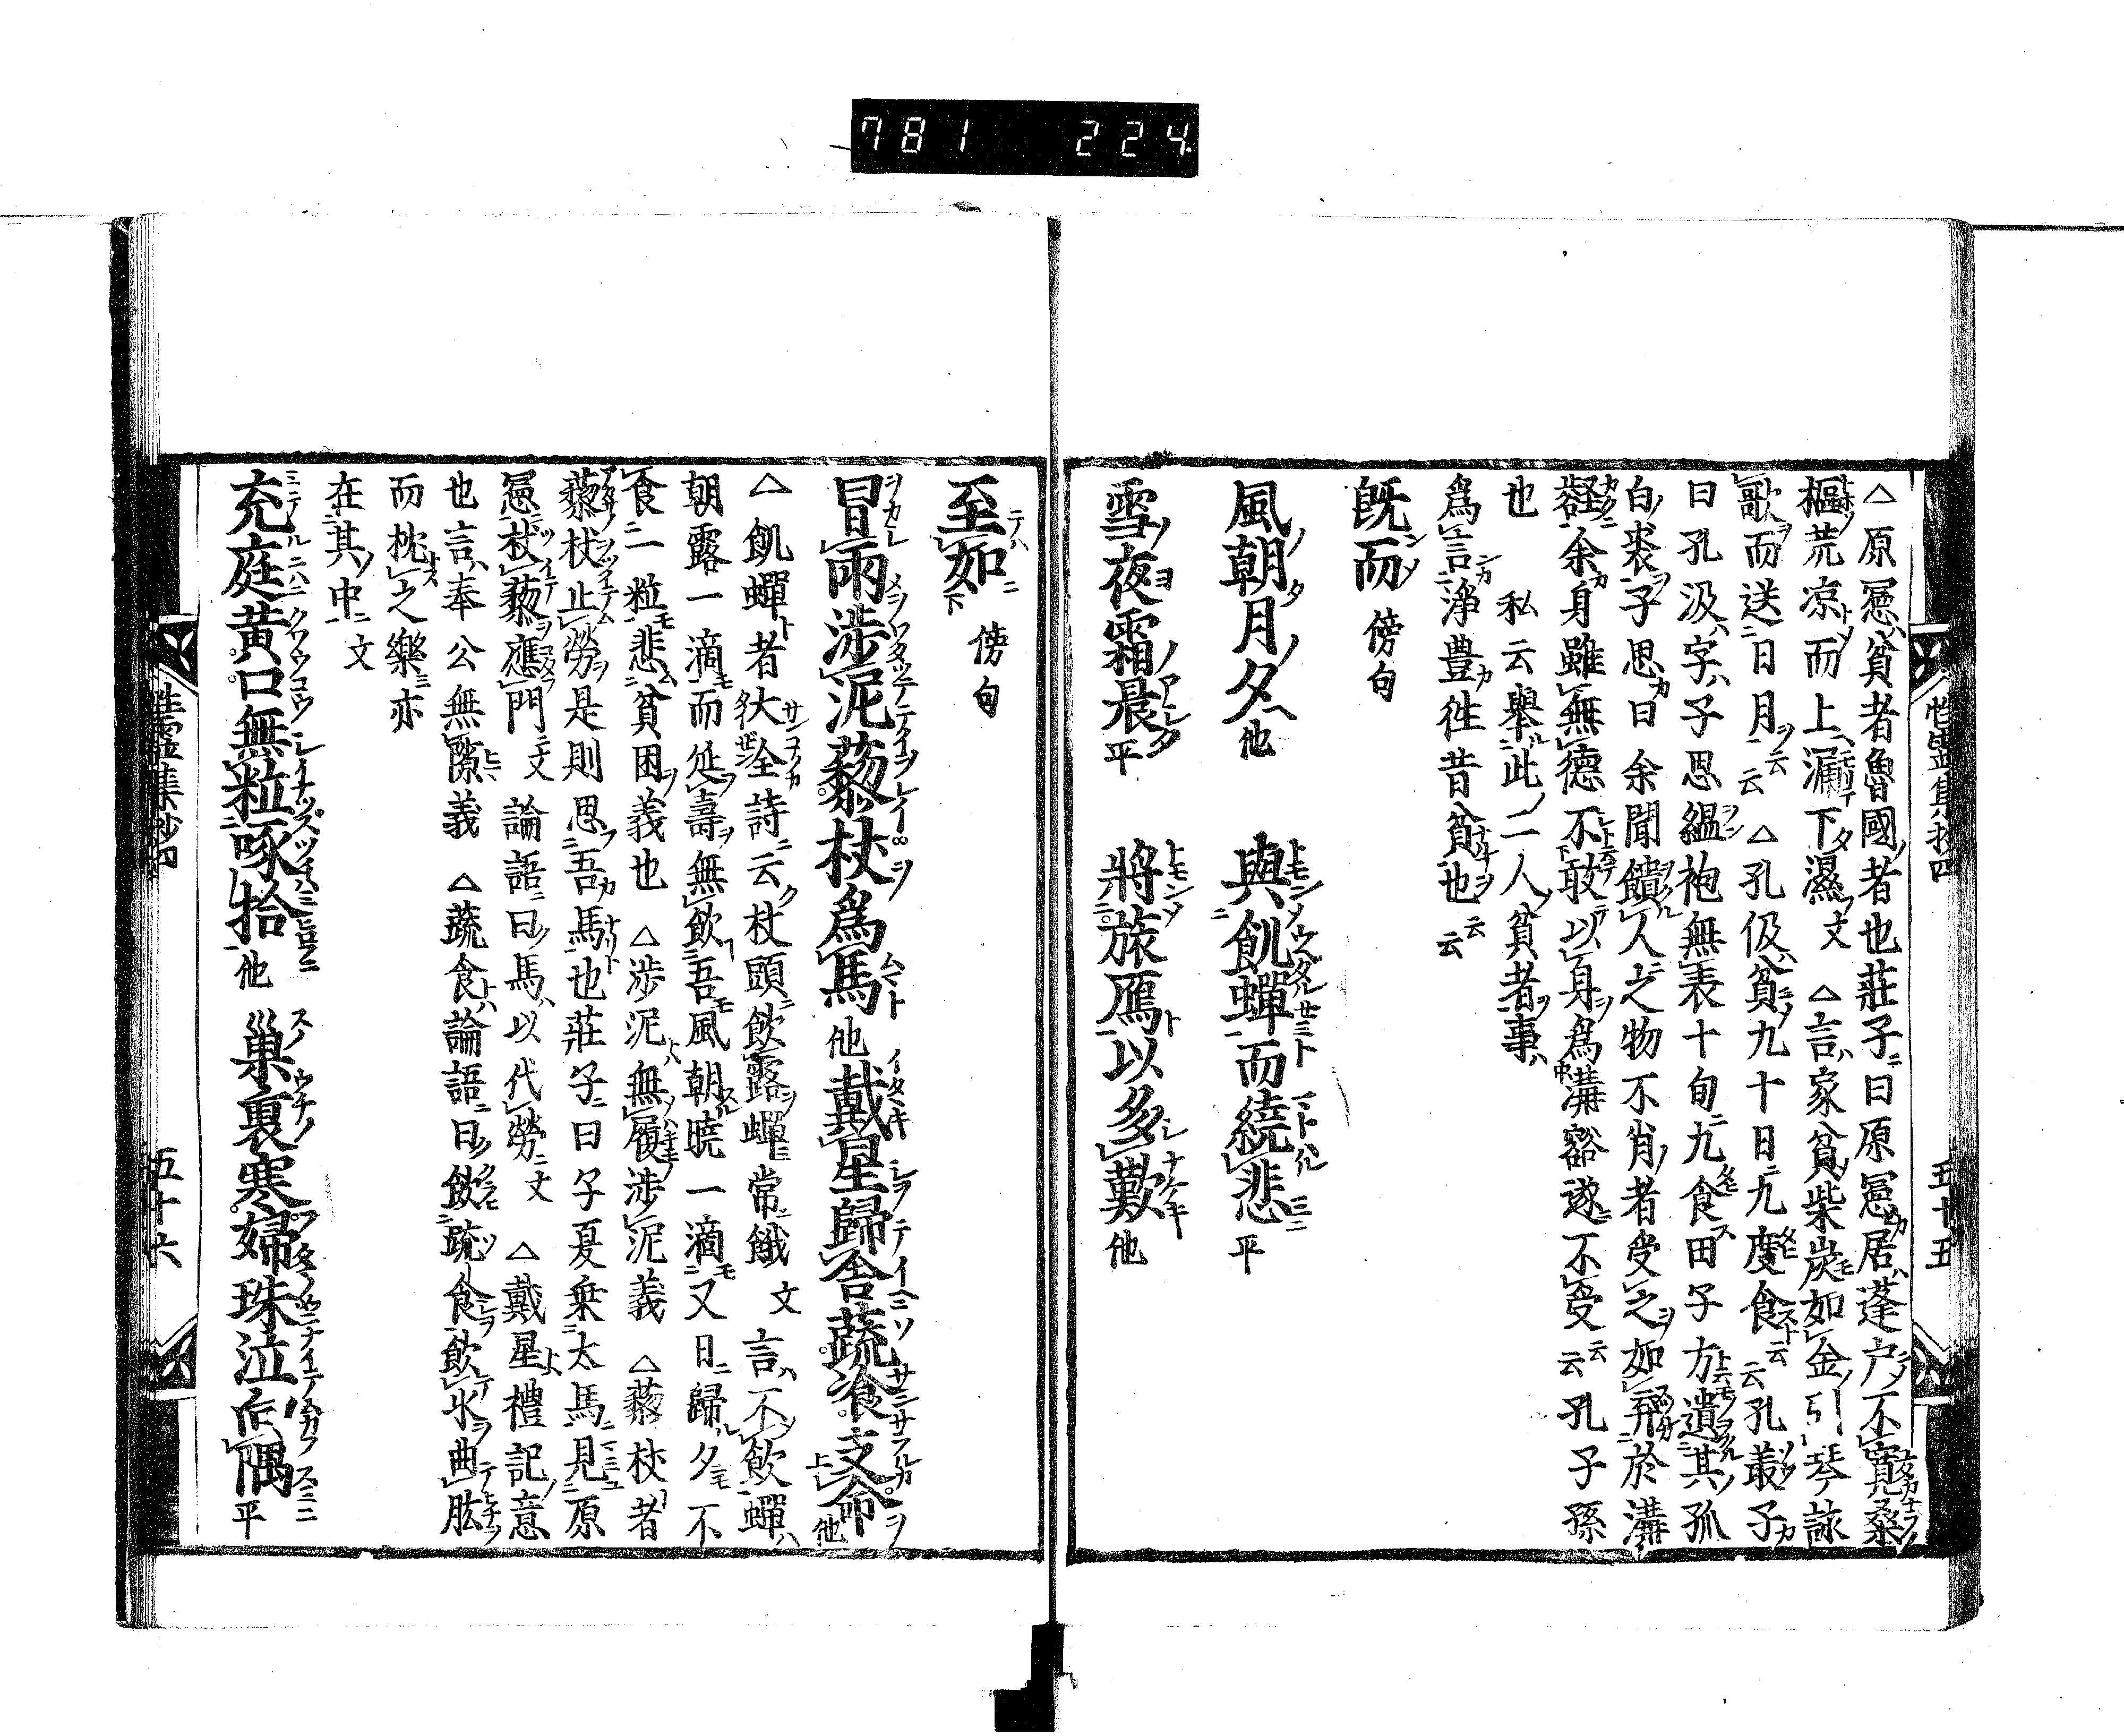 781 224
性靈集抄四 五十五
△原憲貧者魯國者也莊子曰原憲居蓬户不寛桑
樞荒凉而上漏下濕文 △言家貧柴炭如金引琴詠
歌而送日月云云 △孔伋貧九十日九度食云云孔叢子
曰孔汲字子思緼袍無表十旬九食田子方遺其狐
白裘子思曰余聞饋人之物不肖者受之如弃於溝
壑余身雖無德不敢以身爲溝壑遂不受云云孔子孫
也 私云舉此二人貧者事
爲言淨豊徃昔貧也云云
既而 傍句
風朝月夕他 與飢蟬而繞悲平
雪夜霜晨平 將旅鴈以多歎他
至如 傍句
冒雨涉泥藜杖爲馬他戴星歸舍蔬飡支命他
△飢蟬者杖全詩云杖頭飮露蟬常餓文 言不飮蟬
朝露一滴而延壽無飮吾風朝曉一滴又日歸夕不
食一粒悲貧困義也 △涉泥無履涉泥義 △藜杖者
藜杖止勞是則思吾馬也莊子曰子夏乗太馬見原
憲杖藜應門文 論語曰馬以代勞文 △戴星禮記意
也言奉公無隙義 △蔬食論語曰飮疏食飮水曲肱
而枕之樂亦
在其中文
充庭黄口無粒啄拾他 巢裏寒婦珠泣向隅平
性靈集抄四 五十六